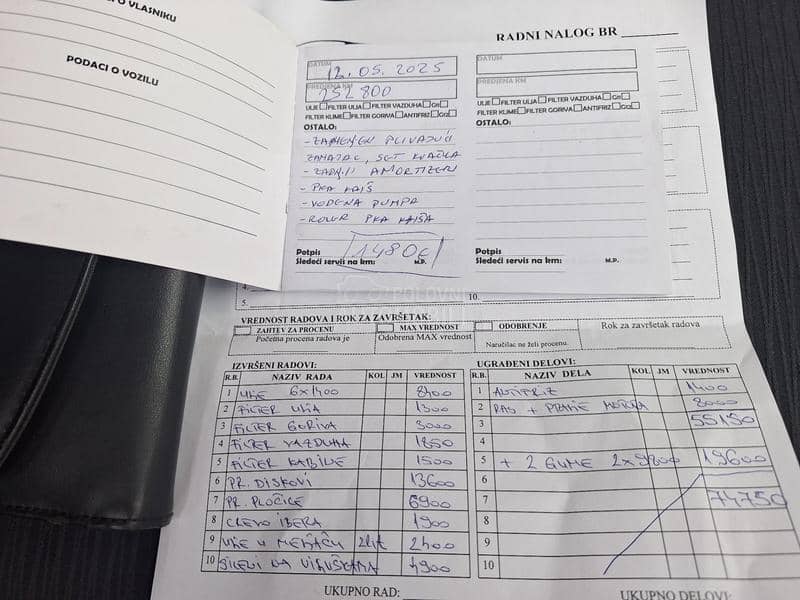 O VLASNIKU
PODACI O VOZILU
RADNI NALOG BR
DATUM
12.05.2025
PREDJENA KM
252800
ULJE FILTER ULJA FILTER VAZDUHA GH
FILTER KLIME FILTER GORIVA ANTIFRIZ GG
OSTALO:
- ZAMENJEN PLIVAJUĆI
ZAMAJAC, SET KVAČILA
- ZADNJI AMORTIZERI
- PKA KAIŠ
- VODENA PUMPA
- ROLER PKA KAIŠA
1480€
Potpis
Sledeći servis na km:
M.P.
DATUM
PREDJENA KM
ULJE FILTER ULJA FILTER VAZDUHA GH
FILTER KLIME FILTER GORIVA ANTIFRIZ GG
OSTALO:
Potpis
Sledeći servis na km:
M.P.
5.
10.
VREDNOST RADOVA I ROK ZA ZAVRŠETAK:
ZAHTEV ZA PROCENU
Početna procena radova je
MAX VREDNOST
Odobrena MAX vrednost
ODOBRENJE
Naručilac ne želi procenu.
Rok za završetak radova
IZVRŠENI RADOVI:
R.B. NAZIV RADA KOL JM VREDNOST
1 ULJE 6x1400 8400
2 FILTER ULJA 1300
3 FILTER GORIVA 3000
4 FILTER VAZDUHA 1850
5 FILTER KABINE 1500
6 PR. DISKOVI 13600
7 PR. PLOČICE 6900
8 CREVO 1900
9 ULJE U MENJAČU 2lit 2400
10 4900
UKUPNO RAD:
UGRAĐENI DELOVI:
R.B. NAZIV DELA KOL JM VREDNOST
1 ANTIFRIZ 1400
2 RAD + PRANJE MOTORA 8000
3 55150
4
5 + 2 GUME 2x9800 19600
6
7 74750
8
9
10
UKUPNO DELOVI: